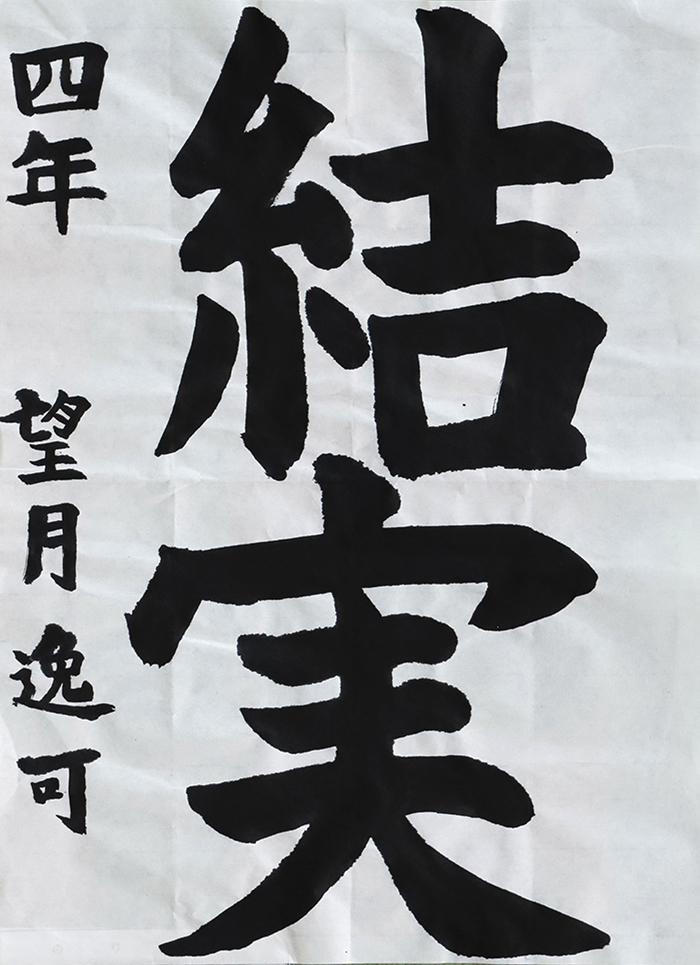 結実
四年 望月逸可